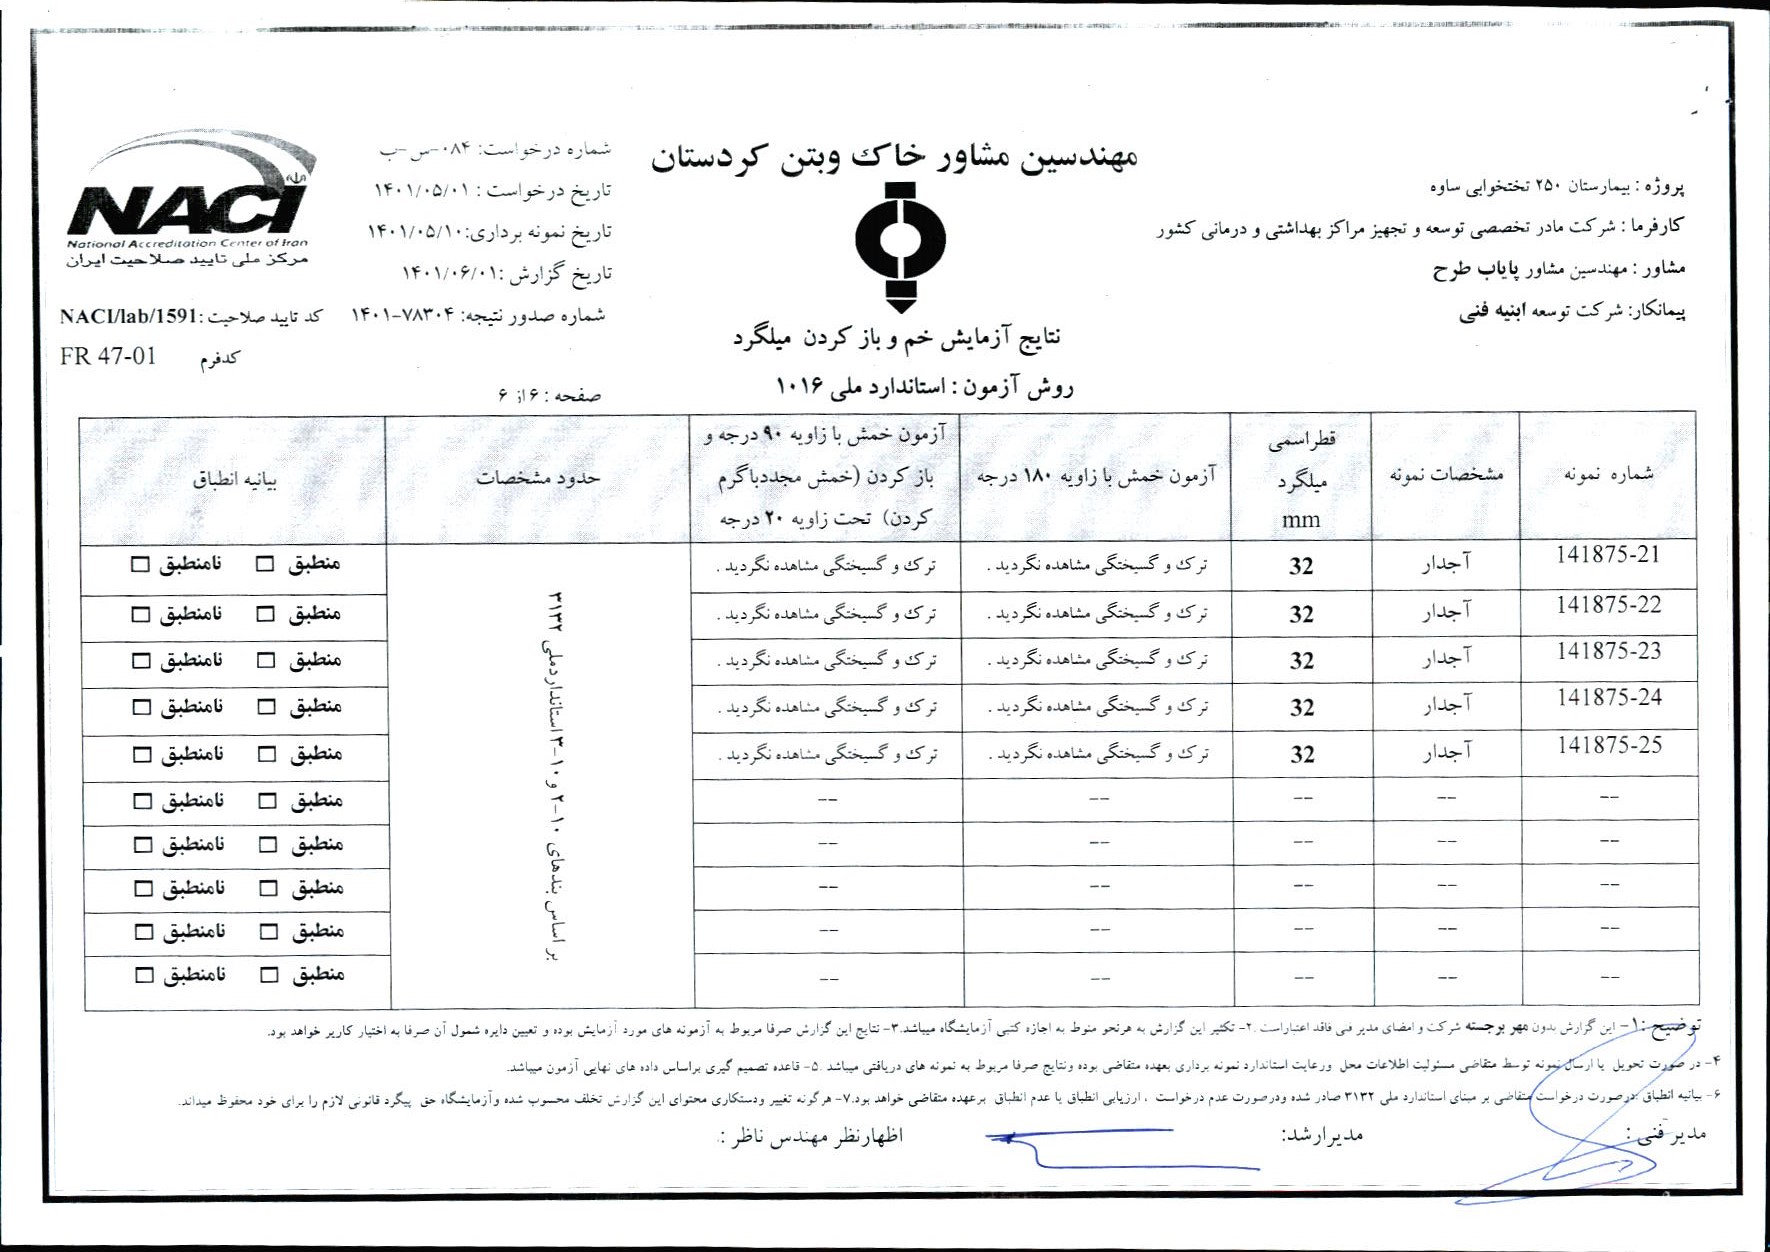 مهندسین مشاور خاک وبتن کردستان
پروژه : بیمارستان ۲۵۰ تختخوابی ساوه
کارفرما : شرکت مادر تخصصی توسعه و تجهیز مراکز بهداشتی و درمانی کشور
مشاور : مهندسین مشاور پایاب طرح
پیمانکار: شرکت توسعه ابنیه فنی
نتایج آزمایش خم و باز کردن میلگرد
روش آزمون : استاندارد ملی ۱۰۱۶
شماره درخواست: ۰۸۴-س-ب
تاریخ درخواست : ۱۴۰۱/۰۵/۰۱
تاریخ نمونه برداری:۱۴۰۱/۰۵/۱۰
تاریخ گزارش :۱۴۰۱/۰۶/۰۱
شماره صدور نتیجه: ۷۸۳۰۴-۱۴۰۱
صفحه : ۶ از ۶
NACI
National Accreditation Center of Iran
مرکز ملی تایید صلاحیت ایران
کد تایید صلاحیت :NACI/lab/1591
کدفرم FR 47-01
شماره نمونه | مشخصات نمونه | قطراسمی میلگرد mm | آزمون خمش با زاویه ۱۸۰ درجه | آزمون خمش با زاویه ۹۰ درجه و باز کردن (خمش مجددباگرم کردن) تحت زاویه ۲۰ درجه | حدود مشخصات | بیانیه انطباق
141875-21 | آجدار | 32 | ترک و گسیختگی مشاهده نگردید . | ترک و گسیختگی مشاهده نگردید . | منطبق ☐ نامنطبق ☐
141875-22 | آجدار | 32 | ترک و گسیختگی مشاهده نگردید . | ترک و گسیختگی مشاهده نگردید . | منطبق ☐ نامنطبق ☐
141875-23 | آجدار | 32 | ترک و گسیختگی مشاهده نگردید . | ترک و گسیختگی مشاهده نگردید . | منطبق ☐ نامنطبق ☐
141875-24 | آجدار | 32 | ترک و گسیختگی مشاهده نگردید . | ترک و گسیختگی مشاهده نگردید . | منطبق ☐ نامنطبق ☐
141875-25 | آجدار | 32 | ترک و گسیختگی مشاهده نگردید . | ترک و گسیختگی مشاهده نگردید . | منطبق ☐ نامنطبق ☐
-- | -- | -- | -- | -- | منطبق ☐ نامنطبق ☐
-- | -- | -- | -- | -- | منطبق ☐ نامنطبق ☐
-- | -- | -- | -- | -- | منطبق ☐ نامنطبق ☐
-- | -- | -- | -- | -- | منطبق ☐ نامنطبق ☐
-- | -- | -- | -- | -- | منطبق ☐ نامنطبق ☐
بر اساس بندهای ۱۰-۲ و ۱۰-۳ استانداردملی ۳۱۳۲
توضیح :۱- این گزارش بدون مهر برجسته شرکت و امضای مدیر فنی فاقد اعتباراست .۲- تکثیر این گزارش به هرنحو منوط به اجازه کتبی آزمایشگاه میباشد.۳- نتایج این گزارش صرفا مربوط به آزمونه های مورد آزمایش بوده و تعیین دایره شمول آن صرفا به اختیار کاربر خواهد بود.
۴- در صورت تحویل یا ارسال نمونه توسط متقاضی مسئولیت اطلاعات محل ورعایت استاندارد نمونه برداری بعهده متقاضی بوده ونتایج صرفا مربوط به نمونه های دریافتی میباشد .۵- قاعده تصمیم گیری براساس داده های نهایی آزمون میباشد.
۶- بیانیه انطباق درصورت درخواست متقاضی بر مبنای استاندارد ملی ۳۱۳۲ صادر شده ودرصورت عدم درخواست ، ارزیابی انطباق یا عدم انطباق برعهده متقاضی خواهد بود.۷- هرگونه تغییر ودستکاری محتوای این گزارش تخلف محسوب شده وآزمایشگاه حق پیگرد قانونی لازم را برای خود محفوظ میداند.
مدیر فنی : مدیرارشد: اظهارنظر مهندس ناظر :